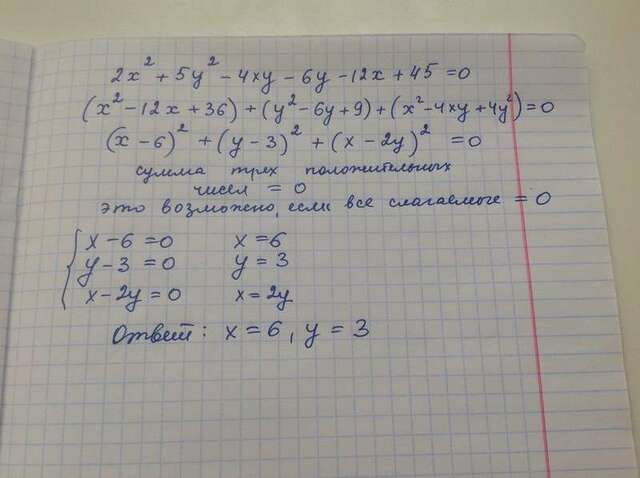 2x² + 5y² - 4xy - 6y - 12x + 45 = 0
(x² - 12x + 36) + (y² - 6y + 9) + (x² - 4xy + 4y²) = 0
(x - 6)² + (y - 3)² + (x - 2y)² = 0
сумма трех положительных
чисел = 0
это возможно, если все слагаемые = 0
{ x - 6 = 0 x = 6
y - 3 = 0 y = 3
x - 2y = 0 x = 2y
Ответ: x = 6, y = 3